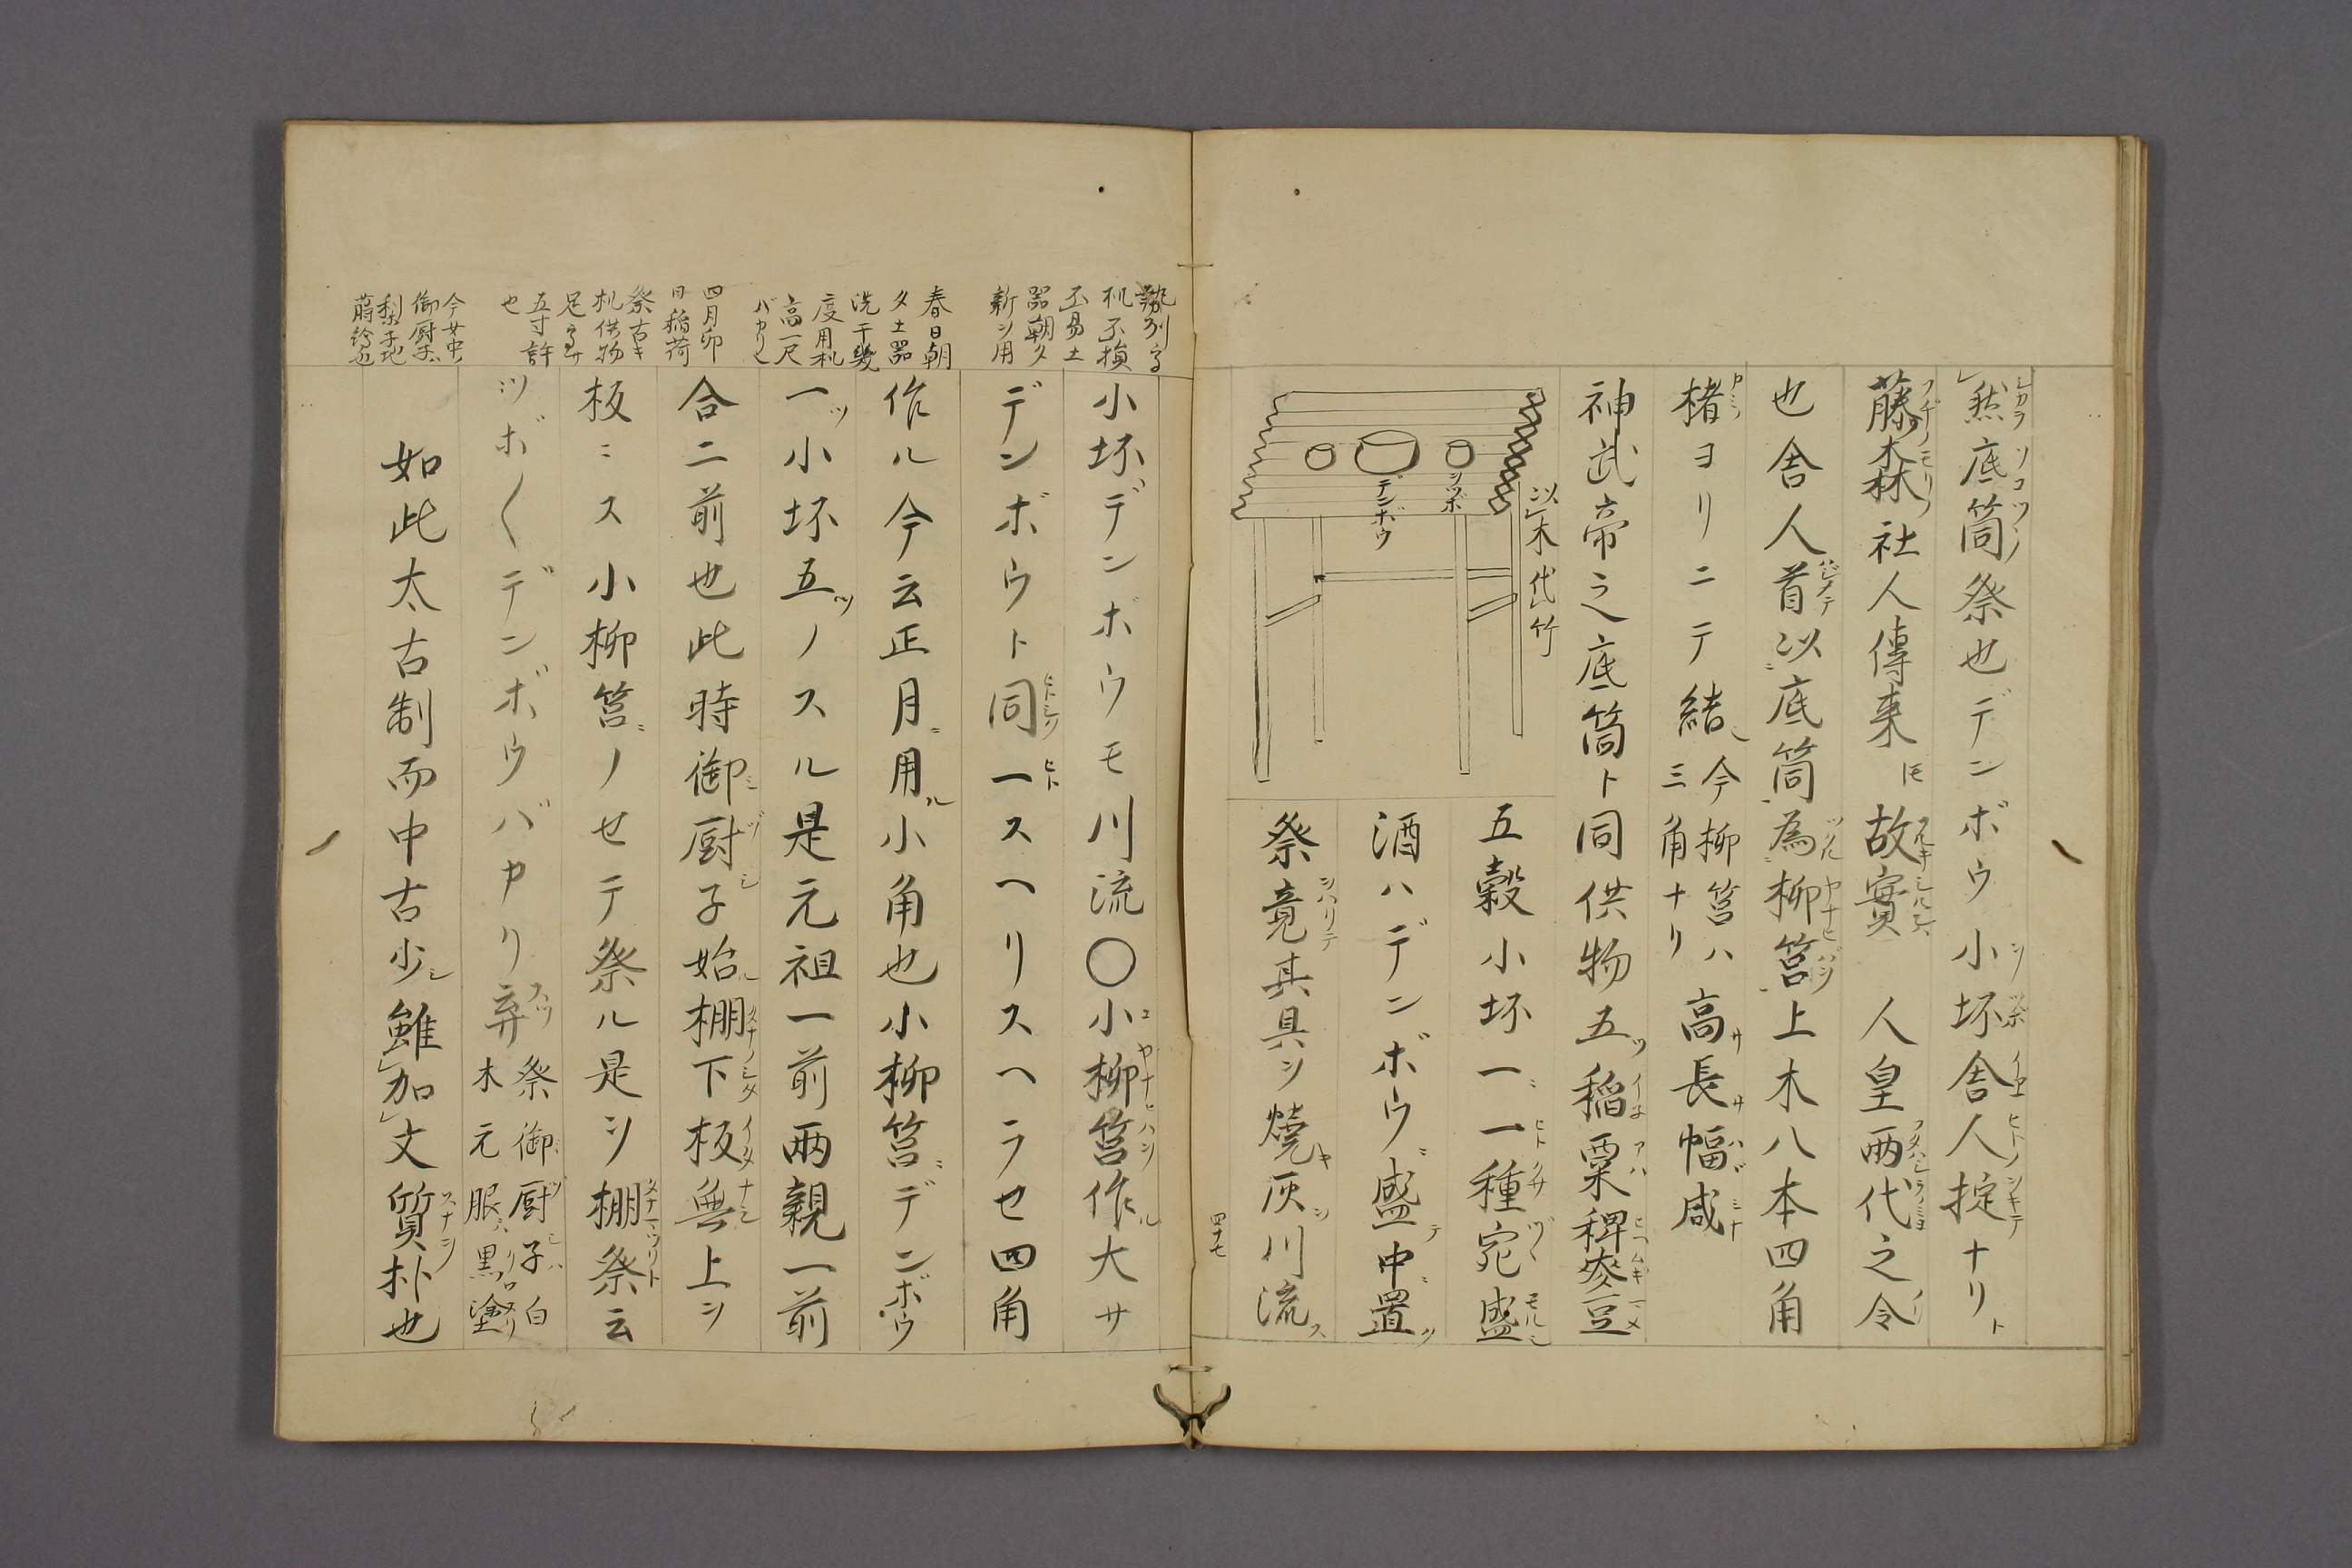 然底筒祭也デンボウ小坏舎人掟ナリト
藤森社人傳来𪜈故實　人皇兩代之令
也舎人首以底筒為柳筥上木八本四角
楮ヨリニテ結 今柳筥ハ三角ナリ 高サ長サ幅咸
神武帝之底筒ト同供物五ツ稲粟稗麥豆
以木代竹
シツボ
デンボウ
五穀小坏一ニ一種宛盛
酒ハデンボウニ盛テ中ニ置ク
祭竟其具ヲ焼キ灰ヲ川流ス
四十七
小坏デンボウモ川流〇小柳筥作ル大サ
デンボウト同一スヘリスヘラセ四角
作ル今云正月ニ用ル小角也小柳筥ニデンボウ
一ツ小坏五ツノスル是元祖一前兩親一前
合二前也此時御厨子始ル棚下板無上ヲ
板ニス小柳筥ニノセテ祭ル是ヲ棚祭云
ツボ〱デンボウバカリ弃 祭御厨子ハ白
木元服ハ黒塗リ
如此太古制而中古少シ雖加文質朴也
机不損
不易土
器朝夕
新シ用
春日朝
夕土器
洗干幾
度用机
高一尺
バカリ也
四月卯
日稲荷
祭古キ
机供物
足高サ
五寸許
也
今女中ノ
御厨子
梨子地
蒔絵也